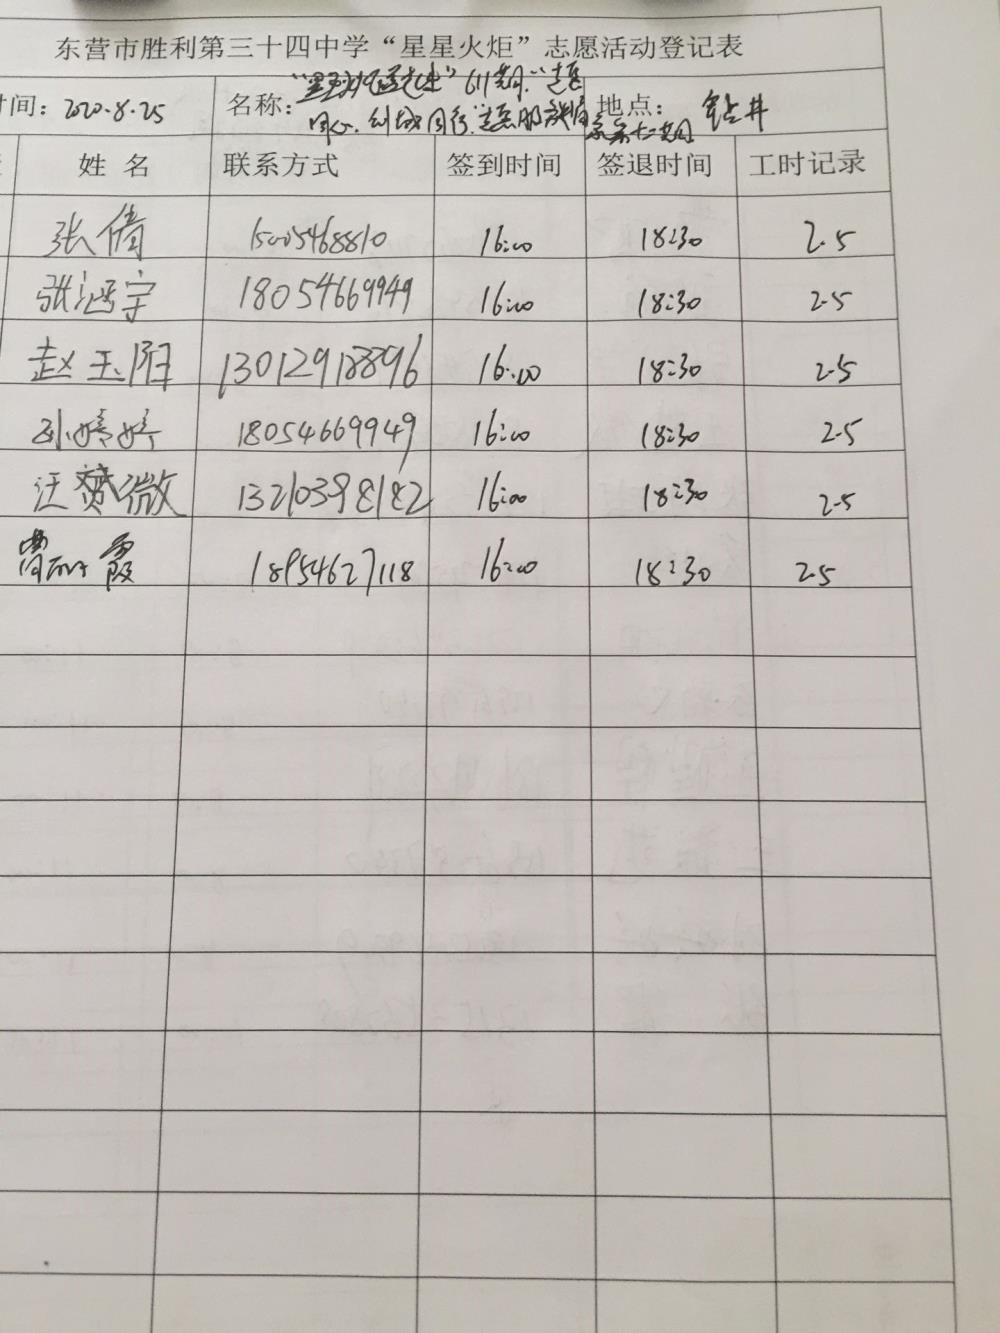 东营市胜利第三十四中学“星星火炬”志愿活动登记表
时间： 2020.8.25 名称： 611期 地点： 钻井
同心、创城同行
姓 名 联系方式 签到时间 签退时间 工时记录
张倩 15005468810 16:00 18:30 2.5
张涵宇 18054669949 16:00 18:30 2.5
赵玉阳 13012918896 16:00 18:30 2.5
孙婷婷 18054669949 16:00 18:30 2.5
汪赟微 13210398182 16:00 18:30 2.5
霞 18954627118 16:00 18:30 2.5